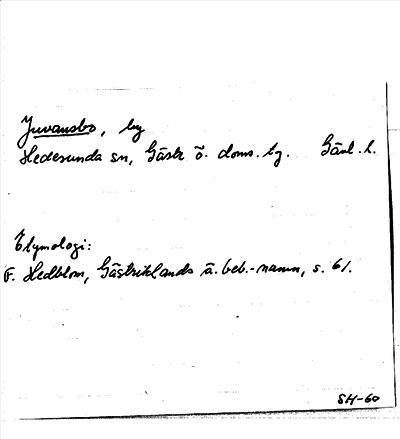 Juvansbo, by
Hedesunda sn, Gästr ö. doms.bg. Gävl. l.
Etymologi:
F. Hedblom, Gästriklands ä. beb.-namn, s. 61.
SH-60